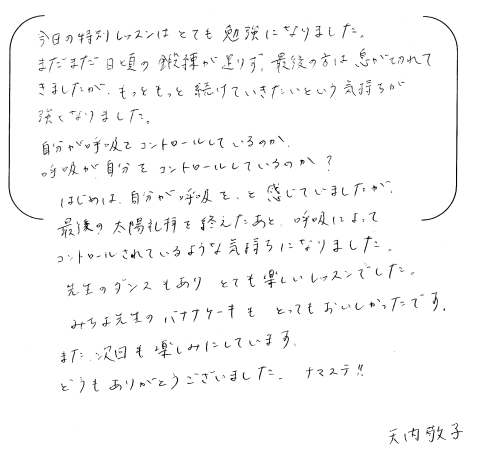 今日の特別レッスンはとても勉強になりました。
まだまだ日頃の鍛練が足りず、最後の方は息が切れて
きましたが、もっともっと続けていきたいという気持ちが
強くなりました。
自分が呼吸をコントロールしているのか、
呼吸が自分をコントロールしているのか?
はじめは、自分が呼吸を、と感じていましたが、
最後の太陽礼拝を終えたあと、呼吸によって
コントロールされているような気持ちになりました。
先生のダンスもあり とても楽しいレッスンでした。
みちよ先生のバナナケーキも とってもおいしかったです。
また、次回も楽しみにしています。
どうもありがとうございました。 ナマステ!!
天内敬子